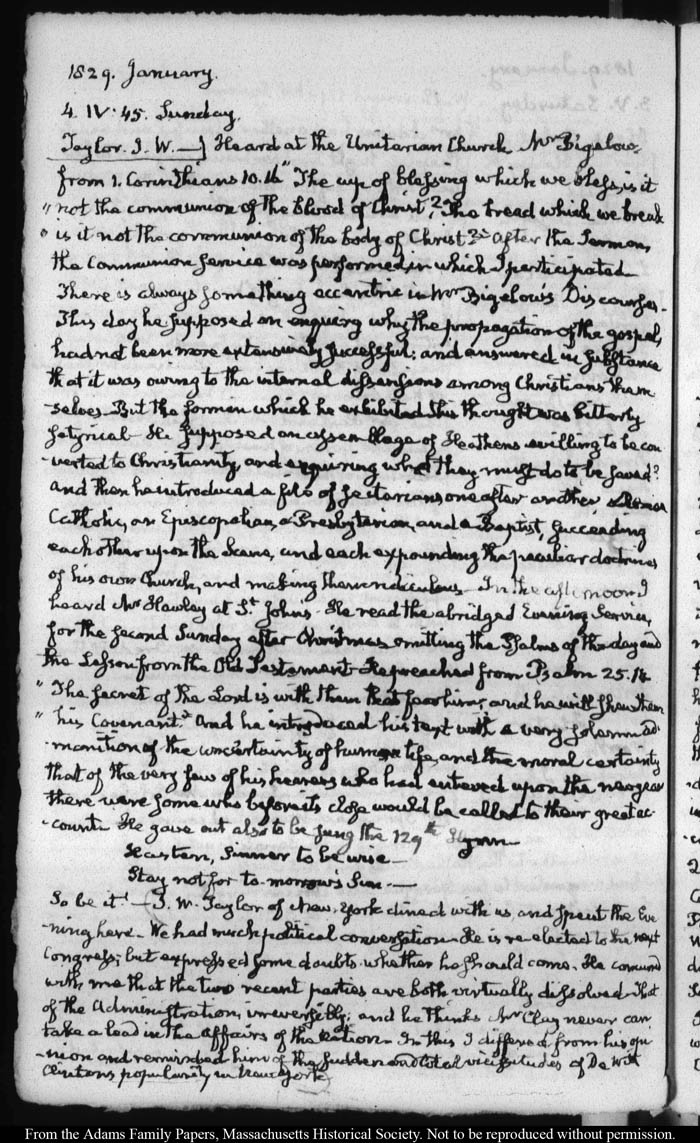 1829. January.
4. IV. 45. Sunday.
Taylor. J. W.—] Heard at the Unitarian Church, Mr Bigelow,
from 1. Corinthians 10. 16 "The cup of blessing which we bless, is it
" not the communion of the blood of Christ? The bread which we break
" is it not the communion of the body of Christ?" After the Sermon,
the Communion service was performed in which I participated—
There is always something eccentric in Mr Bigelow's Discourses—
This day he supposed an enquiry why the propagation of the gospel,
had not been more extensively successful: and answered in substance
that it was owing to the internal dissensions among Christians them
-selves. But the form in which he exhibited this thought was bitterly
satyrical— He supposed an assemblage of Heathens willing to be con
-verted to Christianity, and enquiring what they must do to be saved?
and then he introduced a file of sectarians one after another a Roman
Catholic, an Episcopalian, a Presbyterian, and a Baptist, succeeding
each other upon the scene, and each expounding the peculiar doctrines
of his own Church, and making them ridiculous— In the afternoon I
heard Mr Hawley at St. John's. He read the abridged Evening Service,
for the second Sunday after Christmas, omitting the Psalms of the day and
the Lesson from the Old Testament. He preached from Psalm 25. 14
" The secret of the Lord is with them that fear him; and he will shew them
" his Covenant." And he introduced his text with a very solemn ad
-monition of the uncertainty of human life, and the moral certainty
that of the very few of his hearers who had entered upon the new year
there were some who before its close would be called to their great ac-
-count. He gave out also to be sung the 129th Hymn
Hasten, Sinner to be wise—
Stay not for to-morrow's Sun.—
So be it!—J. W. Taylor of New-York dined with us, and spent the Eve
-ning here. We had much political conversation. He is re-elected to the next
Congress; but expressed some doubts whether he should come. He concurred
with me that the two recent parties are both virtually dissolved. That
of the Administration, irreversibly; and he thinks Mr Clay never can
take a lead in the affairs of the nation. In this I differed from his opi
-nion and reminded him of the sudden and total vicissitudes of De Witt
Clinton's popularity in New York.
From the Adams Family Papers, Massachusetts Historical Society. Not to be reproduced without permission.